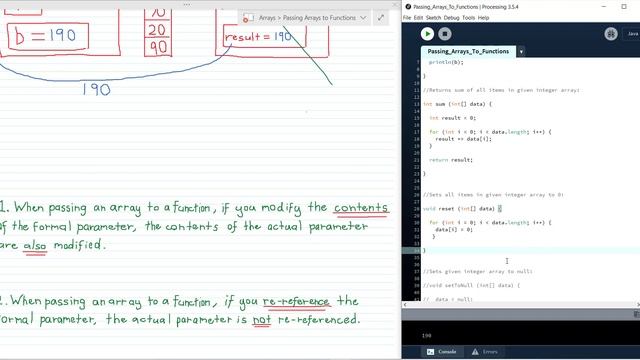 Arrays > Passing Arrays to Functions
b = 190
20
90
result = 190
190
1. When passing an array to a function, if you modify the contents
of the formal parameter, the contents of the actual parameter
are also modified.
2. When passing an array to a function, if you re-reference the
formal parameter, the actual parameter is not re-referenced.
Passing_Arrays_To_Functions | Processing 3.5.4
File Edit Sketch Debug Tools Help
Java
Passing_Arrays_To_Functions
7 println(b);
8
9 }
10
11 //Returns sum of all items in given integer array:
12
13 int sum (int[] data) {
14
15 int result = 0;
16
17 for (int i = 0; i < data.length; i++) {
18 result += data[i];
19 }
20
21 return result;
22
23 }
24
25
26 //Sets all items in given integer array to 0:
27
28 void reset (int[] data) {
29
30 for (int i = 0; i < data.length; i++) {
31 data[i] = 0;
32 }
33
34 }
35
36
37 //Sets given integer array to null:
38
39 //void setToNull (int[] data) {
40
41 // data = null;
190
Console
Errors